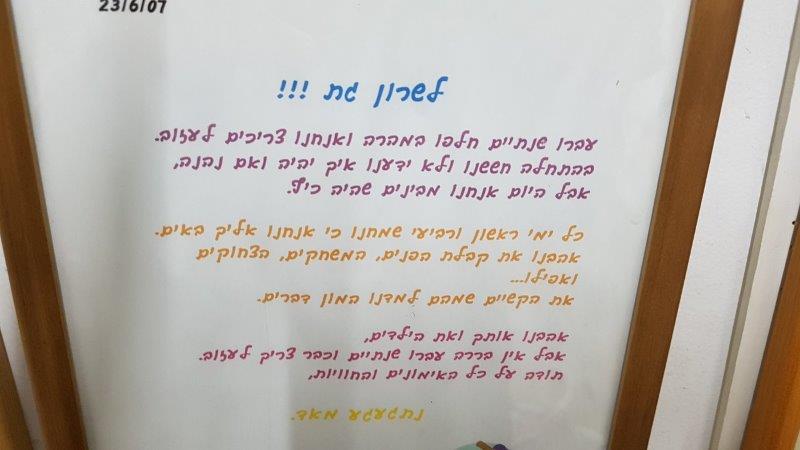 23/6/07
לשרון גת !!!
עברו שנתיים חלפו במהרה ואנחנו צריכים לעזוב.
בהתחלה חששנו ולא ידענו איך יהיה ואם נהנה,
אבל היום אנחנו מבינים שהיה כיף.
כל ימי ראשון ורביעי שמחנו כי אנחנו אליך באים.
אהבנו את קבלת הפנים, המשחקים, הצחוקים
ואפילו...
את הקשיים שמהם למדנו המון דברים.
אהבנו אותך ואת הילדים,
אבל אין בררה עברו שנתיים וכבר צריך לעזוב.
תודה על כל האימונים והחוויות,
נתגעגע מאד.